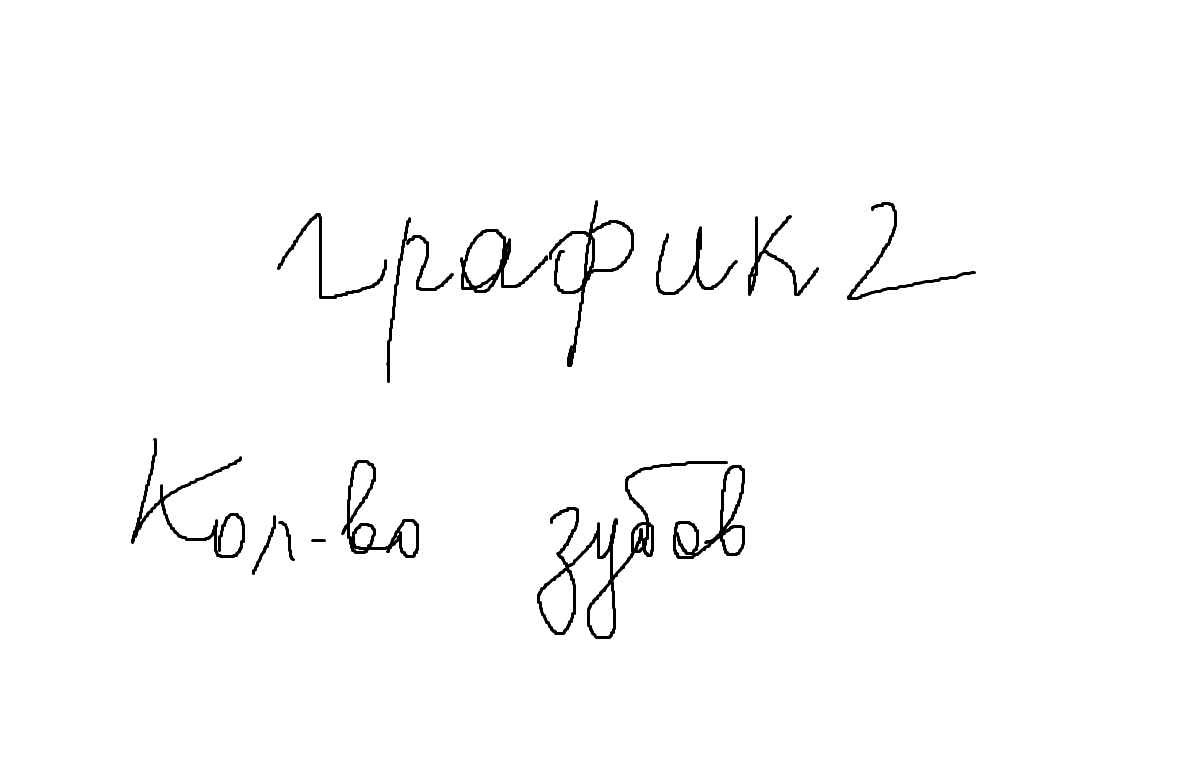 график 2
Кол-во зубов